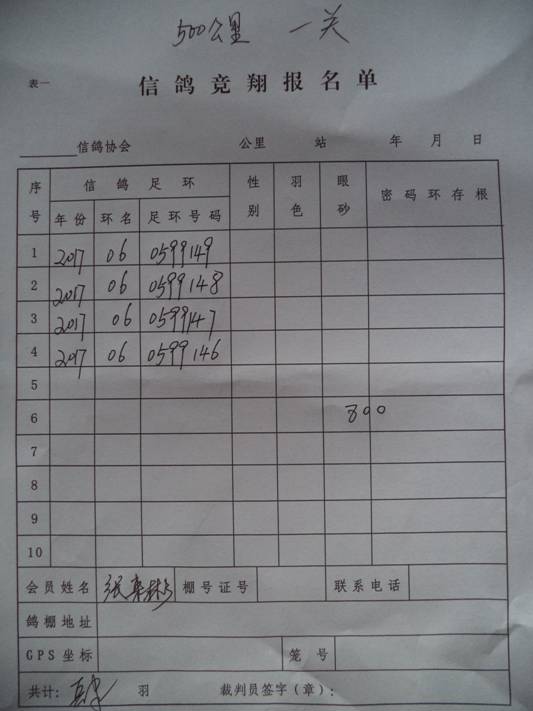 500公里 一关
表一
信鸽竞翔报名单
信鸽协会 公里 站 年 月 日
序号 信鸽足环 性别 羽色 眼砂 密码环存根
年份 环名 足环号码
1 2017 06 0599149
2 2017 06 0599148
3 2017 06 0599147
4 2017 06 0599146
5
6 800
7
8
9
10
会员姓名 棚号证号 联系电话
鸽棚地址
GPS坐标 笼号
共计: 羽 裁判员签字(章):